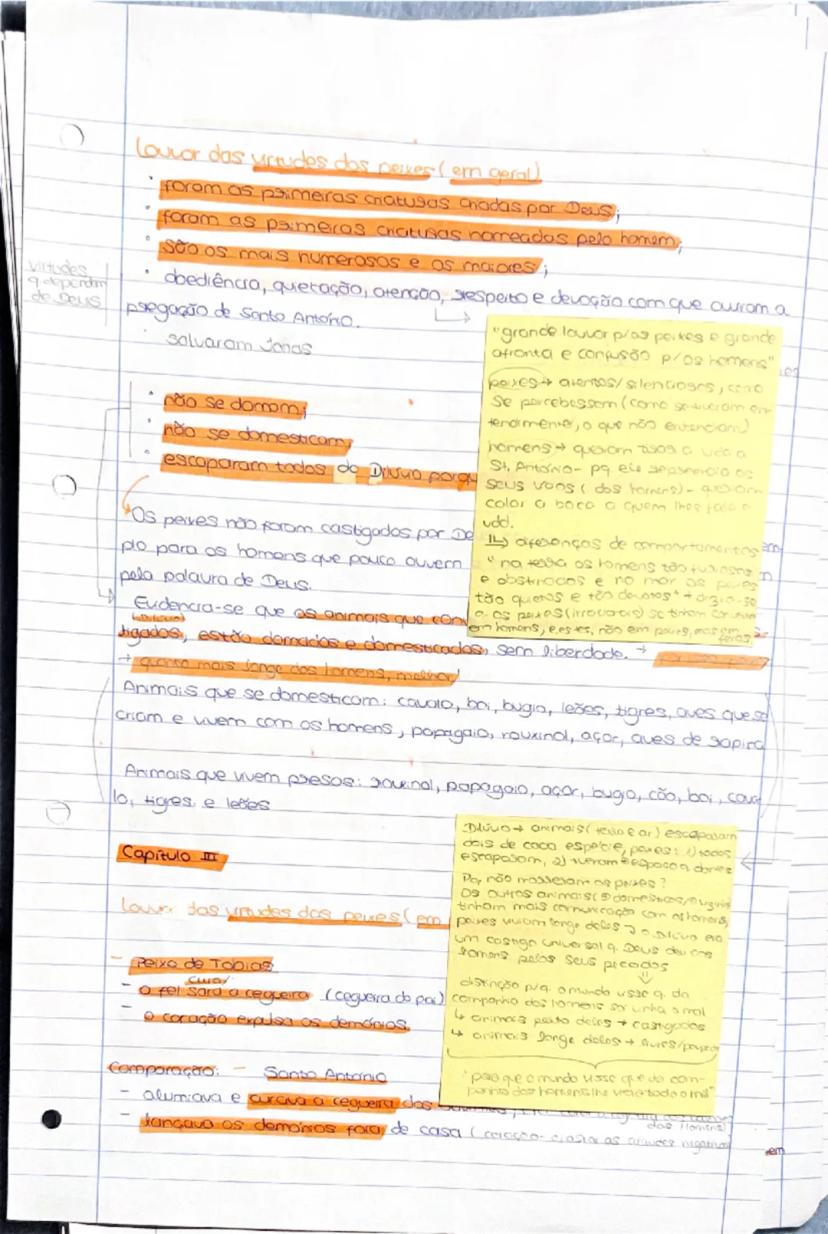 Louvor das virtudes dos peixes (em geral)
· foram as primeiras criaturas criadas por Deus;
· foram as primeiras criaturas nomeadas pelo homem;
· são os mais numerosos e os maiores;
virtudes
q dependem
de Deus
· obediência, quietação, atenção, respeito e devoção com que ouviram a
pregação de Santo António.
· salvaram Jonas
"grande louvor p/os peixes e grande
afronta e confusão p/os homens"
peixes → atentos/silenciosos, como
se percebessem (como se tivessem en
tendimento, o que não entenciam)
homens → queriam tirar a vida a
St. António - pq ele repreendia os
seus vícios (dos homens) - queriam
calar a boca a quem lhes fala a
vdd.
↳ diferenças de comportamentos
"na terra os homens tão furiosos
e obstinados e no mar os peixes
tão quietos e tão devotos" →
q os peixes (irracionais) se tinham
em homens, e estes, não em peixes, mas em
feras
· não se domam;
· não se domesticam;
· escaparam todos do Dilúvio porqu
Os peixes não foram castigados por De
plo para os homens que pouco ouvem
pela palavra de Deus.
Evidencia-se que os animais que con
(Dilúvio)
tigados, estão domados e domesticados, sem liberdade. →
→ quanto mais longe dos homens, melhor!
Animais que se domesticam: cavalo, boi, bugio, leões, tigres, aves que se
criam e vivem com os homens, papagaio, rouxinol, açor, aves de rapina
Animais que vivem presos: rouxinol, papagaio, açor, bugio, cão, boi, cava
lo, tigres e leões
Dilúvio → animais (terra e ar) escaparam
dois de cada espécie, peixes: 1) todos
escaparam, 2) tiveram + espaço
Pq não morreram os peixes?
Os outros animais (
tinham mais comunicação com os homens,
peixes viviam longe deles → o Dilúvio era
um castigo universal q. Deus deu aos
homens pelos seus pecados
⇓
distinção p/q. o mundo visse q. da
companhia dos homens só vinha o mal
↳ animais perto deles → castigados
↳ animais longe deles → livres/
"para que o mundo visse que da com-
panhia dos homens lhe viera todo o mal"
Capítulo III
Louvor das virtudes dos peixes (em
- Peixe de Tobias
curar
- o fel sara a cegueira (cegueira do pai)
- o coração expulsa os demónios.
Comparação: - Santo António
- alumiava e curava a cegueira dos
dos Homens)
- lançava os demónios fora de casa (coração
em